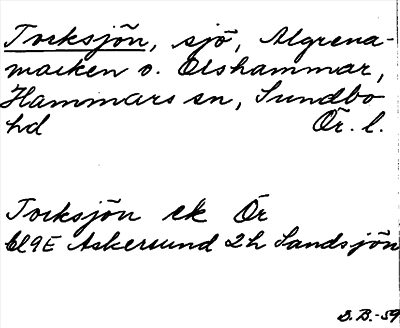 Torksjön, sjö, Algrena-
marken o. Olshammar,
Hammars sn, Sundbo
hd Ör. l.
Torksjön ek Ör
9E Askersund 2h Sandsjön
B.B.-59